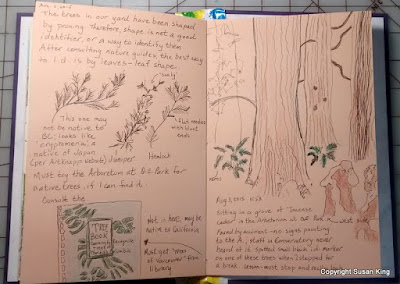 Aug. 1, 2015
The trees in our yard have been shaped
by pruning therefore, shape is not a good
identifier, or a way to identify them
After consulting nature guides, the best way
to i.d. is by leaves - leaf shape.
This one may
not be native to
BC; looks like
cryptomeria, a
native of Japan
(per Arkkrapp website)
Juniper
flat needles
with blunt
ends
Hemlock
Must try the Arboretum at Q.E. Park for
native trees, if I can find it.
Consult the
TREE
BOOK
Not in here, may be
native to California
Must get "Trees
of Vancouver" from
library
Aug 2, 2015
Sitting in a grove of "Incense
cedar" in the Arboretum at QE Park
Found by accident - no signs pointing
to the A, staff in Conservatory never
heard of it. Spotted small black i.d. marker
on one of these trees when I stopped for
a break.
Copyright Susan King